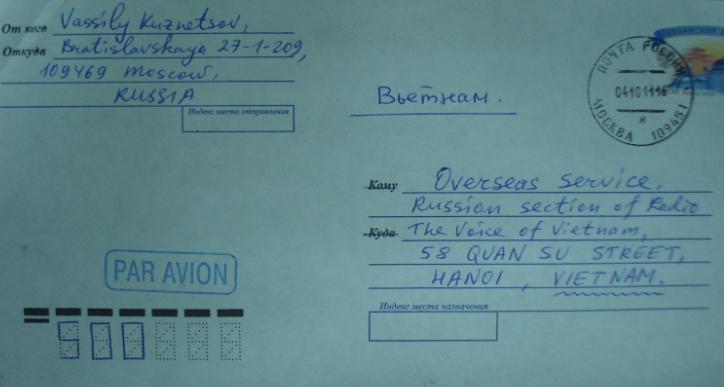 От кого Vassily Kuznetsov,
Откуда Bratislavskaya 27-1-209,
109469 Moscow,
RUSSIA
Индекс места отправления
Вьетнам.
ПОЧТА РОССИИ
0410111
МОСКВА 109451
Кому Overseas Service,
Russian section of Radio
Куда The Voice of Vietnam,
58 QUAN SU STREET,
HANOI, VIETNAM.
Индекс места назначения
PAR AVION
500